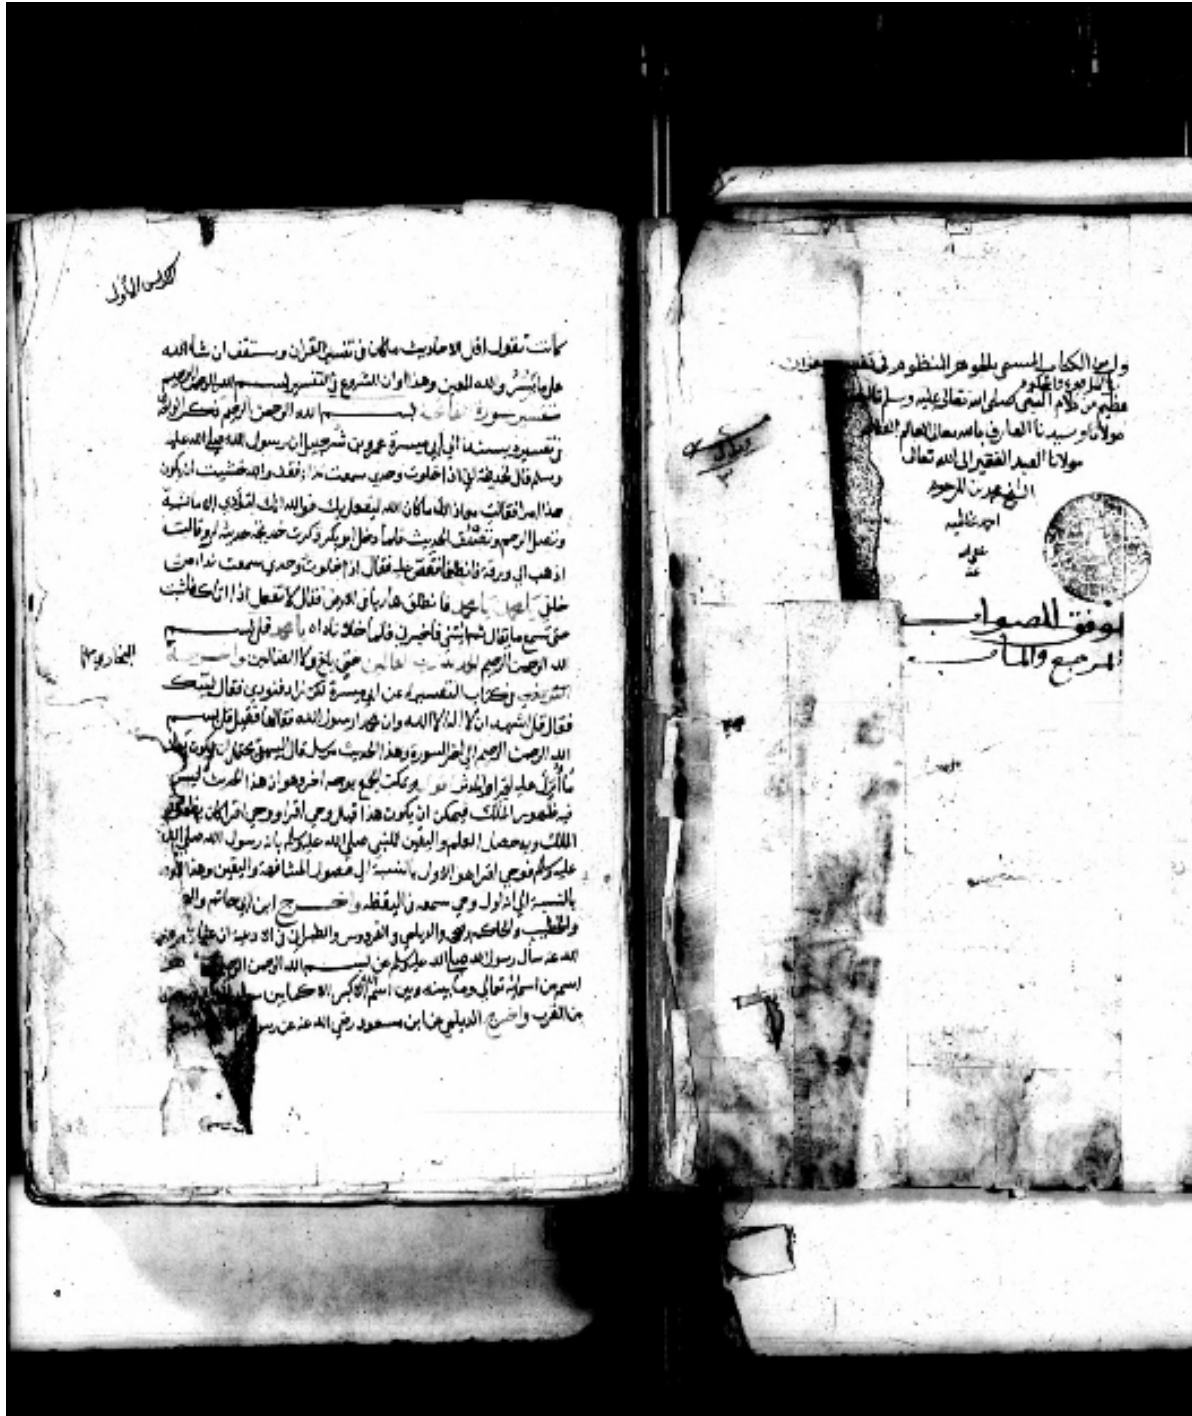 الكتاب المسمى بالجوهر المنظوم في
من كلام النبي صلى الله تعالى عليه وسلم
مولانا وسيدنا العارف بالله تعالى العالم
مولانا العبد الفقير الى الله تعالى
الشيخ محمد بن المرحوم
احمد عقيله
عفى
عنه
للصواب
المرجع والمآب
الاول
كانت تقول اقل الاحاديث مكان في تفسير القران وستقف ان شاء الله
على ما يسر والله المعين وهذا اوان الشروع في التفسير بسم الله الرحمن الرحيم
تفسير سورة الفاتحة بسم الله الرحمن الرحيم
في تفسيره بسنده الى ابي ميسرة عمرو بن شرحبيل ان رسول الله صلى الله عليه
وسلم قال لخديجة اني اذا خلوت وحدي سمعت نداء فقد والله خشيت ان يكون
هذا امرا فقالت معاذ الله ما كان الله ليفعل بك فوالله انك لتؤدي الامانة
وتصل الرحم وتصدق الحديث فلما دخل ابو بكر ذكرت خديجة حديثه له وقالت
اذهب الى ورقة فانطلقا فقص عليه فقال اذا خلوت وحدي سمعت نداء من
خلفي يا محمد يا محمد فانطلق هاربا في الارض فقال لا تفعل اذا اتاك فاثبت
حتى تسمع ما يقال ثم ائتني فاخبرني فلما خلا ناداه يا محمد قل بسم
الله الرحمن الرحيم الحمد لله رب العالمين حتى بلغ ولا الضالين
في كتاب التفسير له عن ابي ميسرة لكن زاد فنودي فقال لبيك
فقال قل اشهد ان لا اله الا الله وان محمدا رسول الله فقالها فقيل قل بسم
الله الرحمن الرحيم الى اخر السورة وهذا الحديث مرسل قال البيهقي
ما انزل عليه اقرا والمدثر ويمكن الجمع بوجه اخر وهو ان هذا الحديث ليس
فيه ظهور الملك فيمكن ان يكون هذا قبل وحي اقرا ووحي اقرا كان
الملك وبه حصل العلم واليقين للنبي صلى الله عليه وسلم بانه رسول الله صلى الله
عليه وسلم فوحي اقرا هو الاول بالنسبة الى حصول المشافهة واليقين وهذا
بالنسبة الى انه اول وحي سمعه في اليقظه واخرج ابن ابي حاتم
والخطيب والحاكم والديلمي والطبراني في الادعية ان عثمان
الله عنه سال رسول الله صلى الله عليه وسلم عن بسم الله الرحمن الرحيم
اسم من اسمائه تعالى وما بينه وبين اسم الله الاكبر الا كما بين
من القرب واخرج الديلمي عن ابن مسعود رضي الله عنه عن رسول
البخاري